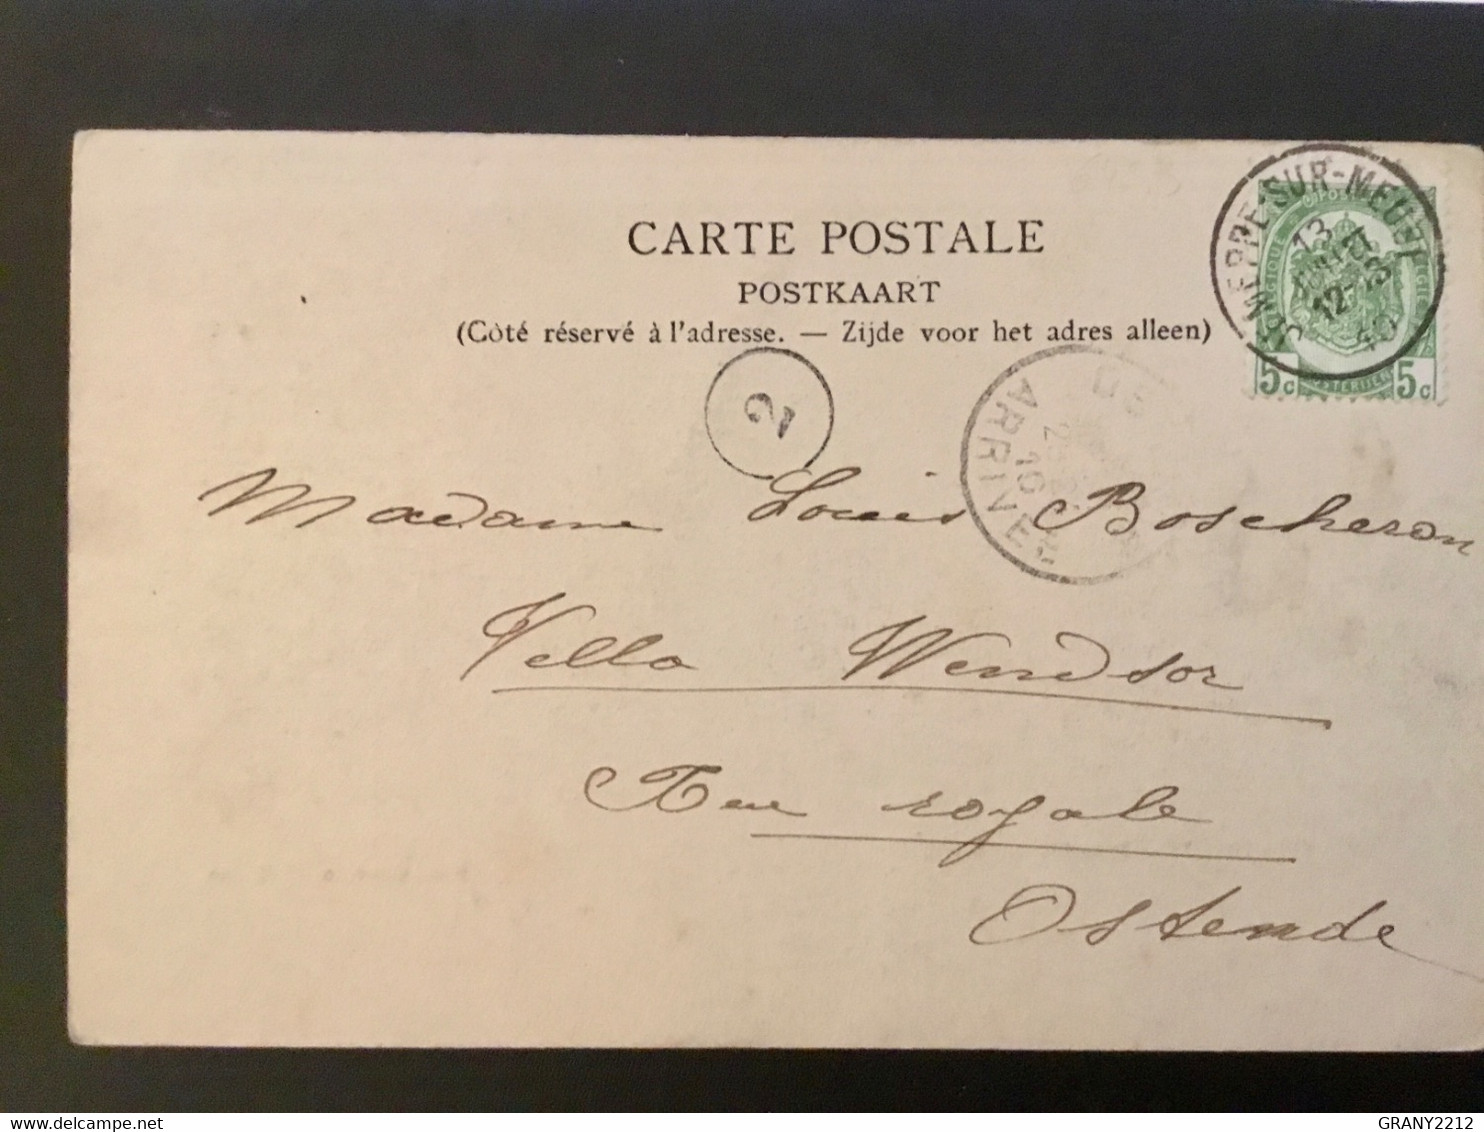 CARTE POSTALE
POSTKAART
(Côté réservé à l'adresse. — Zijde voor het adres alleen)
JEMEPPE-SUR-MEUSE
13
JUILLET
12-13
5c 5c
2
ARRIVÉE
10
Madame Louis Boscheron
Villa Windsor
Rue royale
Ostende
www.delcampe.net
GRANY2212